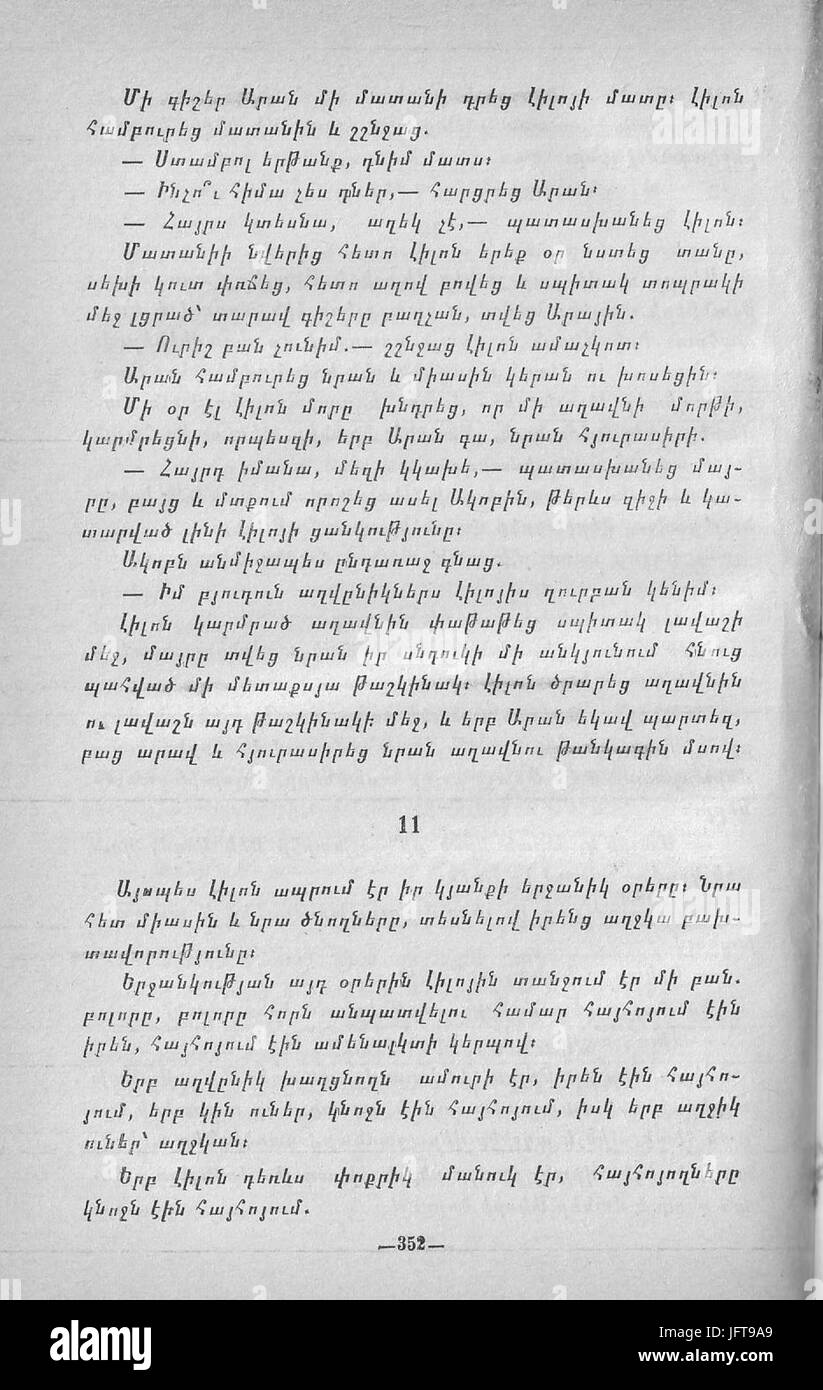 Մի գիշեր Արան մի մատանի դրեց Լիլոյի մատը։ Լիլոն
համբուրեց մատանին և շշնջաց.
— Ստամբոլ երթանք, դնիմ մատս։
— Ինչո՞ւ հիմա չես դներ,— հարցրեց Արան։
— Հայրս կտեսնա, աղեկ չէ,— պատասխանեց Լիլոն։
Մատանիի նվերից հետո Լիլոն երեք օր նստեց տանը,
սեխի կուտ փռճեց, հետո աղով բովեց և սպիտակ տոպրակի
մեջ լցրած՝ տարավ գիշերը բաղչան, տվեց Արային.
— Ուրիշ բան չունիմ.— շշնջաց Լիլոն ամաչկոտ։
Արան համբուրեց նրան և միասին կերան ու խոսեցին։
Մի օր էլ Լիլոն մորը խնդրեց, որ մի աղավնի մորթի,
կարմրեցնի, որպեսզի, երբ Արան գա, նրան հյուրասիրի.
— Հայրդ իմանա, մեզի կկախե,— պատասխանեց մայ-
րը, բայց և մտքում որոշեց ասել Ակոբին, թերևս զիջի և կա-
տարված լինի Լիլոյի ցանկությունը։
Ակոբն անմիջապես ընդառաջ գնաց.
— Իմ բյուդուն աղվընիկներս Լիլոյիս ղուրբան կենիմ։
Լիլոն կարմրած աղավնին փաթաթեց սպիտակ լավաշի
մեջ, մայրը տվեց նրան իր սնդուկի մի անկյունում հնուց
պահված մի մետաքսյա թաշկինակ։ Լիլոն ծրարեց աղավնին
ու լավաշն այդ թաշկինակի մեջ, և երբ Արան եկավ պարտեզ,
բաց արավ և հյուրասիրեց նրան աղավնու թանկագին մսով։
11
Այսպես Լիլոն ապրում էր իր կյանքի երջանիկ օրերը։ Նրա
հետ միասին և նրա ծնողները, տեսնելով իրենց աղջկա բախ-
տավորությունը։
Երջանկության այդ օրերին Լիլոյին տանջում էր մի բան.
բոլորը, բոլորը հորն անպատվելու համար հայհոյում էին
իրեն, հայհոյում էին ամենալկտի կերպով։
Երբ աղվընիկ խաղցնողն ամուրի էր, իրեն էին հայհո-
յում, երբ կին ուներ, կնոջն էին հայհոյում, իսկ երբ աղջիկ
ուներ՝ աղջկան։
Երբ Լիլոն դեռևս փոքրիկ մանուկ էր, հայհոյողները
կնոջն էին հայհոյում.
—352—
alamy
alamy
Image ID: JFT9A9
www.alamy.com